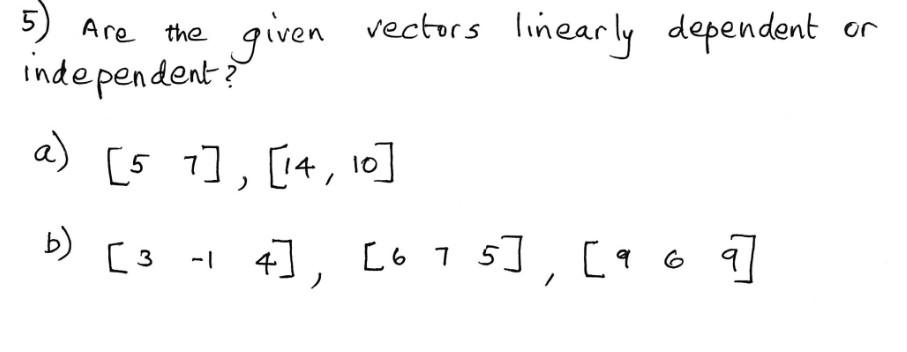 5) Are the given vectors linearly dependent or
independent?
a) [5 7], [14, 10]
b) [3 -1 4], [6 7 5], [9 6 9]